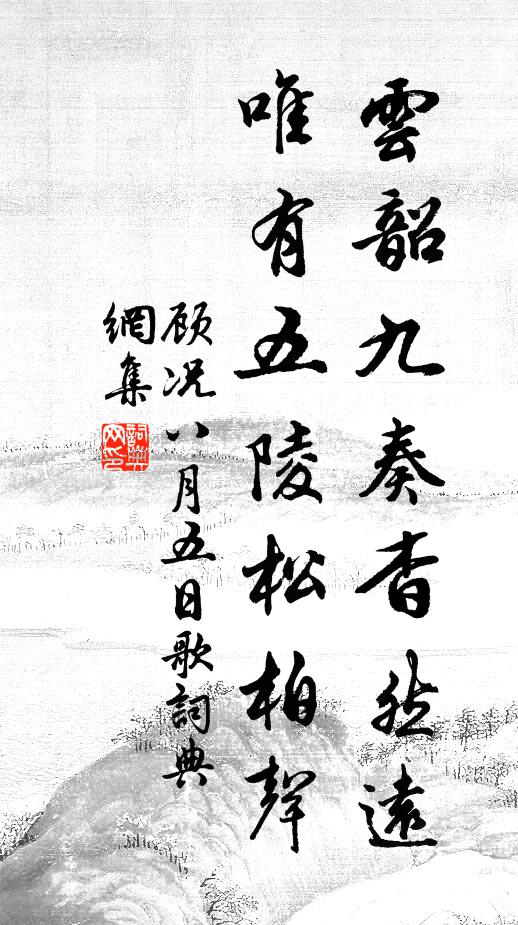 雲韶九奏杳然遠
唯有五陵松柏聲
顾况 八月五日歌詞典
網集